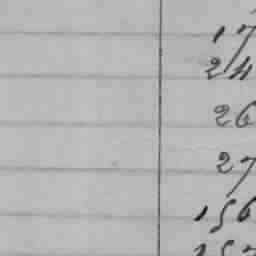 17
24
26
27
156
157